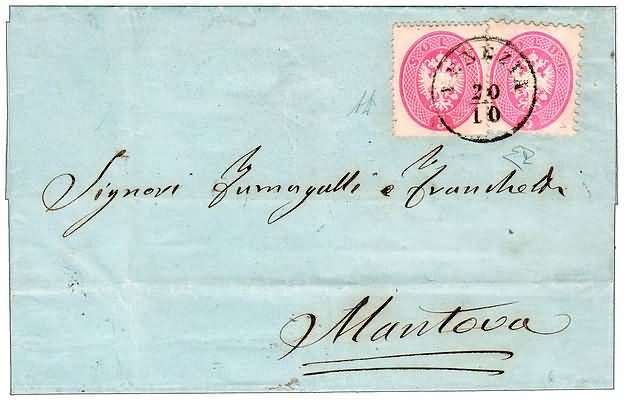 VENEZIA
20
10
Signori Fumagalli e Franchetti
Mantova